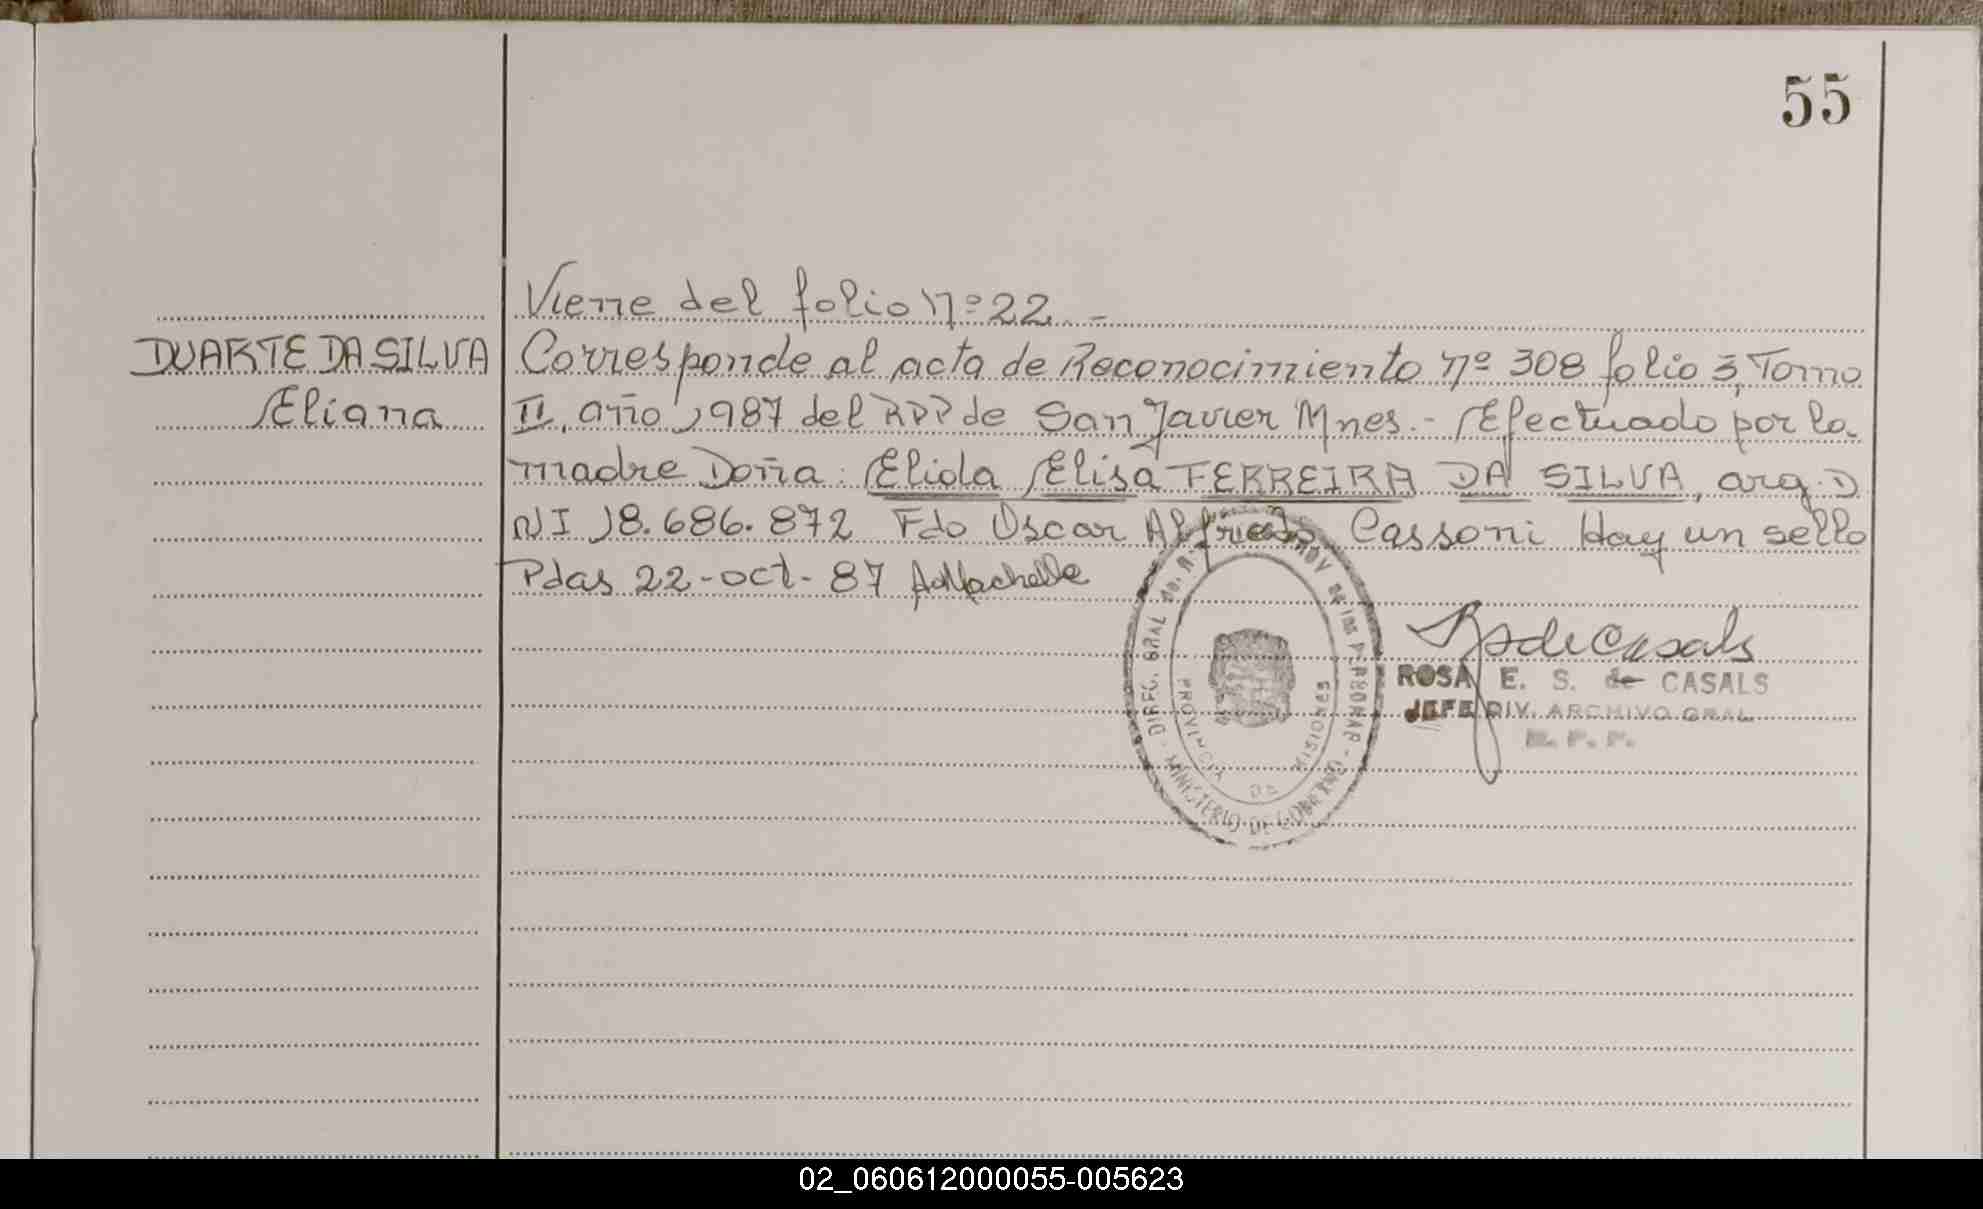 55
Viene del folio nº 22. -
DUARTE DA SILVA
Eliana
Corresponde al acta de Reconocimiento nº 308 folio 3, Tomo
II, año 1987 del RPP de San Javier Mnes. - Efectuado por la
madre Doña: Elida Elisa FERREIRA DA SILVA, arg. D
NI 18.686.872 Fdo Oscar Alfredo Cassoni Hay un sello
Pdas 22-oct-87
DIREC. GRAL del R. PROV de las PERSONAS - MINISTERIO DE GOBIERNO -
PROVINCIA DE MISIONES
R S de Casals
ROSA E. S. de CASALS
JEFE DIV. ARCHIVO GRAL
R. P. P.
02_060612000055-005623